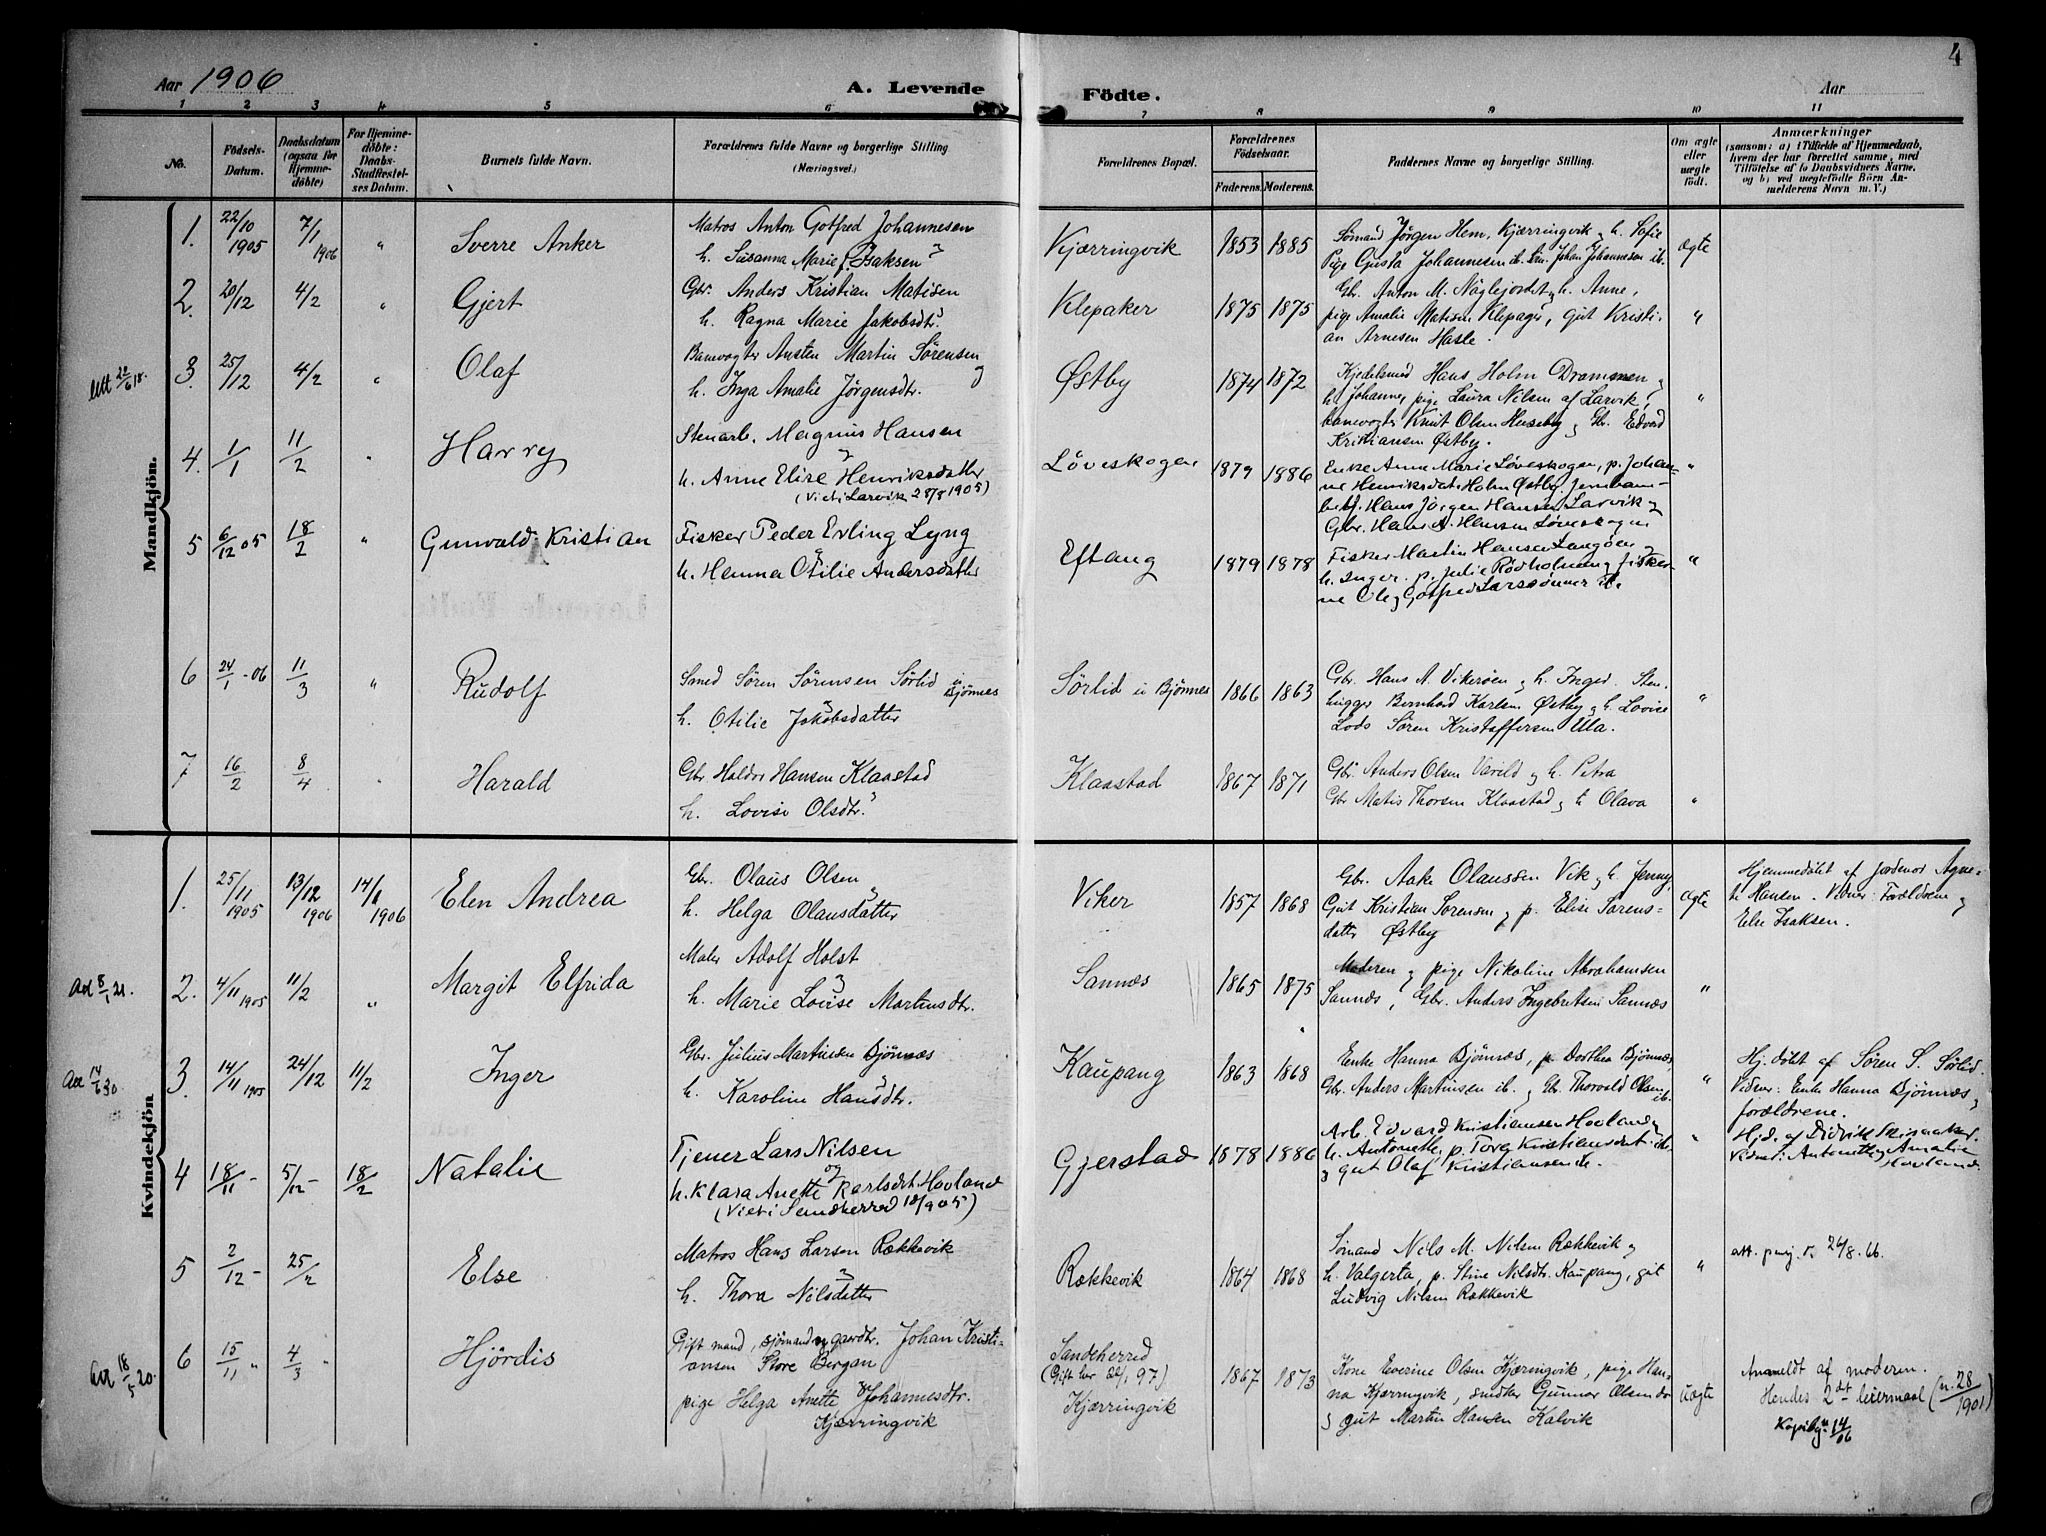 4
Aar 1906
A. Levende
Födte.
Aar
1 2 3 4 5 6 7 8 9 10 11
No.
Födsels-
Datum.
Daabsdatum
(ogsaa for
Hjemme-
döbte)
For Hjemme-
döbte:
Daabs-
Stadfæstel-
ses Datum.
Barnets fulde Navn.
Forældrenes fulde Navne og borgerlige Stilling
(Næringsvei.)
Forældrenes Bopæl.
Forældrenes
Födselsaar.
Faderens. Moderens.
Faddernes Navne og borgerlige Stilling.
Om ægte
eller
uægte
födt.
Anmærkninger
(saasom: a) i Tilfælde af Hjemmedaab,
hvem der har forrettet samme, med
Tilföielse af to Daabsvidners Navne.
og b) ved uægtefödte Börn An-
melderens Navn m. V.)
Mandkjön.
1. 22/10 1905 7/1 1906 " Sverre Anker
Matros Anton Gotfred Johannesen
h. Susanna Marie f. Isaksen
Kjærringvik 1853 1885
Sömand Jörgen Hem, Kjærringvik og h. Sofie
Pige Gusta Johannesen ib. Sm. Johan Johannesen ib.
ægte
2. 20/12 4/2 " Gjert
Gbr. Anders Kristian Matisen
h. Ragna Marie Jakobsdtr.
Klepaker 1875 1875
Gb. Anton M. Näglejordet og h. Anne,
pige Amalie Matisen Klepager, gut Kristi-
an Arnesen Hasle.
"
3. 25/12 4/2 " Olaf
Banevogter Austen Martin Sörensen
og
h. Inga Amalie Jörgensdtr.
Østby 1874 1872
Kjedelsmed Hans Holm Drammen og
h. Johanne, pige Laura Nilsen af Larvik,
banevogter Knut Olsen Huseby og Gbr. Edvard
Kristiansen Østby.
"
4. 1/1 11/2 " Harry
Stenarb. Magnus Hansen
og
h. Anne Elise Henriksdatter
(Viet i Larvik 28/8 1905)
Löveskogen 1879 1886
Enke Anne Marie Löveskogen, p. Johan-
ne Henriksdatr Holm Østby. Jernbane-
betj. Hans Jörgen Hansen Larvik og
Gbr. Hans A. Hansen Löveskogen
"
5 6/12 05 18/2 " Gunvald Kristian
Fisker Peder Erling Lyng
og
h. Hanna Otilie Andersdatter
Eftang 1879 1878
Fisker Martin Hansen Langöen og
h. Inger. p. Julie Rödholmen og fisker-
ne Ole og Gotfred Larssönner ib.
"
6 24/1 - 06 11/3 " Rudolf
Smed Sören Sörensen Sörlid u Björnnes
h. Otilie Jakobsdatter
Sörlid u Björnnes 1866 1863
Gbr. Hans A. Vikeröen og h. Inger. Sten-
hugger Bernhard Karlsen Østby og h. Lovise
Lods Sören Kristoffersen Ula.
"
7 16/2 8/4 " Harald
Gbr Haldor Hansen Klaastad
h. Lovise Olsdtr.
Klaastad 1867 1871
Gbr Anders Olsen Varild og h. Petra
Gbr Matis Thorsen Klaastad og h Olava
"
Kvindekjön
1. 25/11 1905 13/12 1906 14/1 1906 Elen Andrea
Gbr. Olaus Olsen
h. Helga Olausdatter
Viker 1857 1868
Gbr. Aake Olaussen Vik og h. Jenny,
Gut Kristian Sorensen og p. Elise Sorens-
datter Østby
ægte
Hjemmedøbt af jordmor Agne-
te Hansen. Vidner: Forældrene og
Else Isaksen.
Act 5/1 21. 2. 4/11 1905 11/2 " Margit Elfrida
Maler Adolf Holst
h. Marie Louise Martinsdtr.
Sannæs 1865 1875
Moderen og pige Nikoline Abrahamsen
Sannæs, Gbr. Anders Ingebretsen Sannæs
"
3. 14/11 1905 24/12 11/2 Inger
Gbr. Julius Martinsen Björnnæs
h. Karoline Hansdtr.
Kaupang 1863 1868
Enke Hanna Björnnæs, p. Dorthea Björnnæs,
Gbr. Anders Martinsen ib. og Gbr. Thorvald Olsen
ib.
"
Hj. döbt af Sören S. Sörlid.
Vidner: Enke Hanna Björnnæs og
forældrene.
4 18/11 - 5/12 - 18/2 Natalie
Tjener Lars Nilsen
og
h. Klara Anette Karlsdtr. Hovland
(Viet i Sandeherred 10/9 05)
Gjerstad 1878 1886
Arb. Edvard Kristiansen Hovland og
h. Antonette, p. Tora Kristiansdtr. ib.
og gut Olaf Kristiansen ib.
"
Vidner: Antonette og Amalie
Hovland
5 2/12 - 25/2 Else
Matros Hans Larsen Rækkevik
h. Thora Nilsdatter
Rækkevik 1864 1868
Sömand Nils M. Nilsen Rækkevik og
h. Valgerta, p. Stine Nilsdtr. Kaupang, gut
Ludvig Nilsen Rækkevik
"
6 15/11 " 4/3 " Hjördis
Gift mand, sjömand og gaardtr. Johan Kristi-
ansen Store Bergan
pige Helga Anette Johannesdtr.
Kjærringvik
Sandeherred
Kjærringvik
1867 1873
Kone Everine Olsen Kjærringvik, pige Han-
na Kjærringvik, snedker Gunnar Olsen do
og gut Martin Hansen Kalvik
uægte
Anmeldt af moderen.
Hendes 2det leiermaal (n. 28/1901)